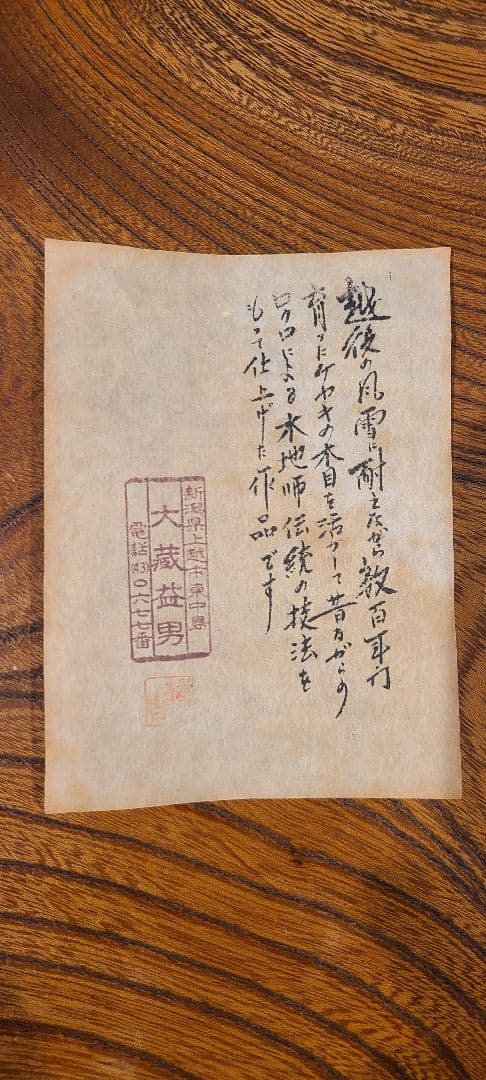 越後の風雪に耐えながら数百年間
育ったケヤキの木目を活かして昔ながらの
ロクロによる木地師伝統の技法を
もって仕上げた作品です
新潟県上越市東中島
大蔵益男
電話(43)〇六七七番